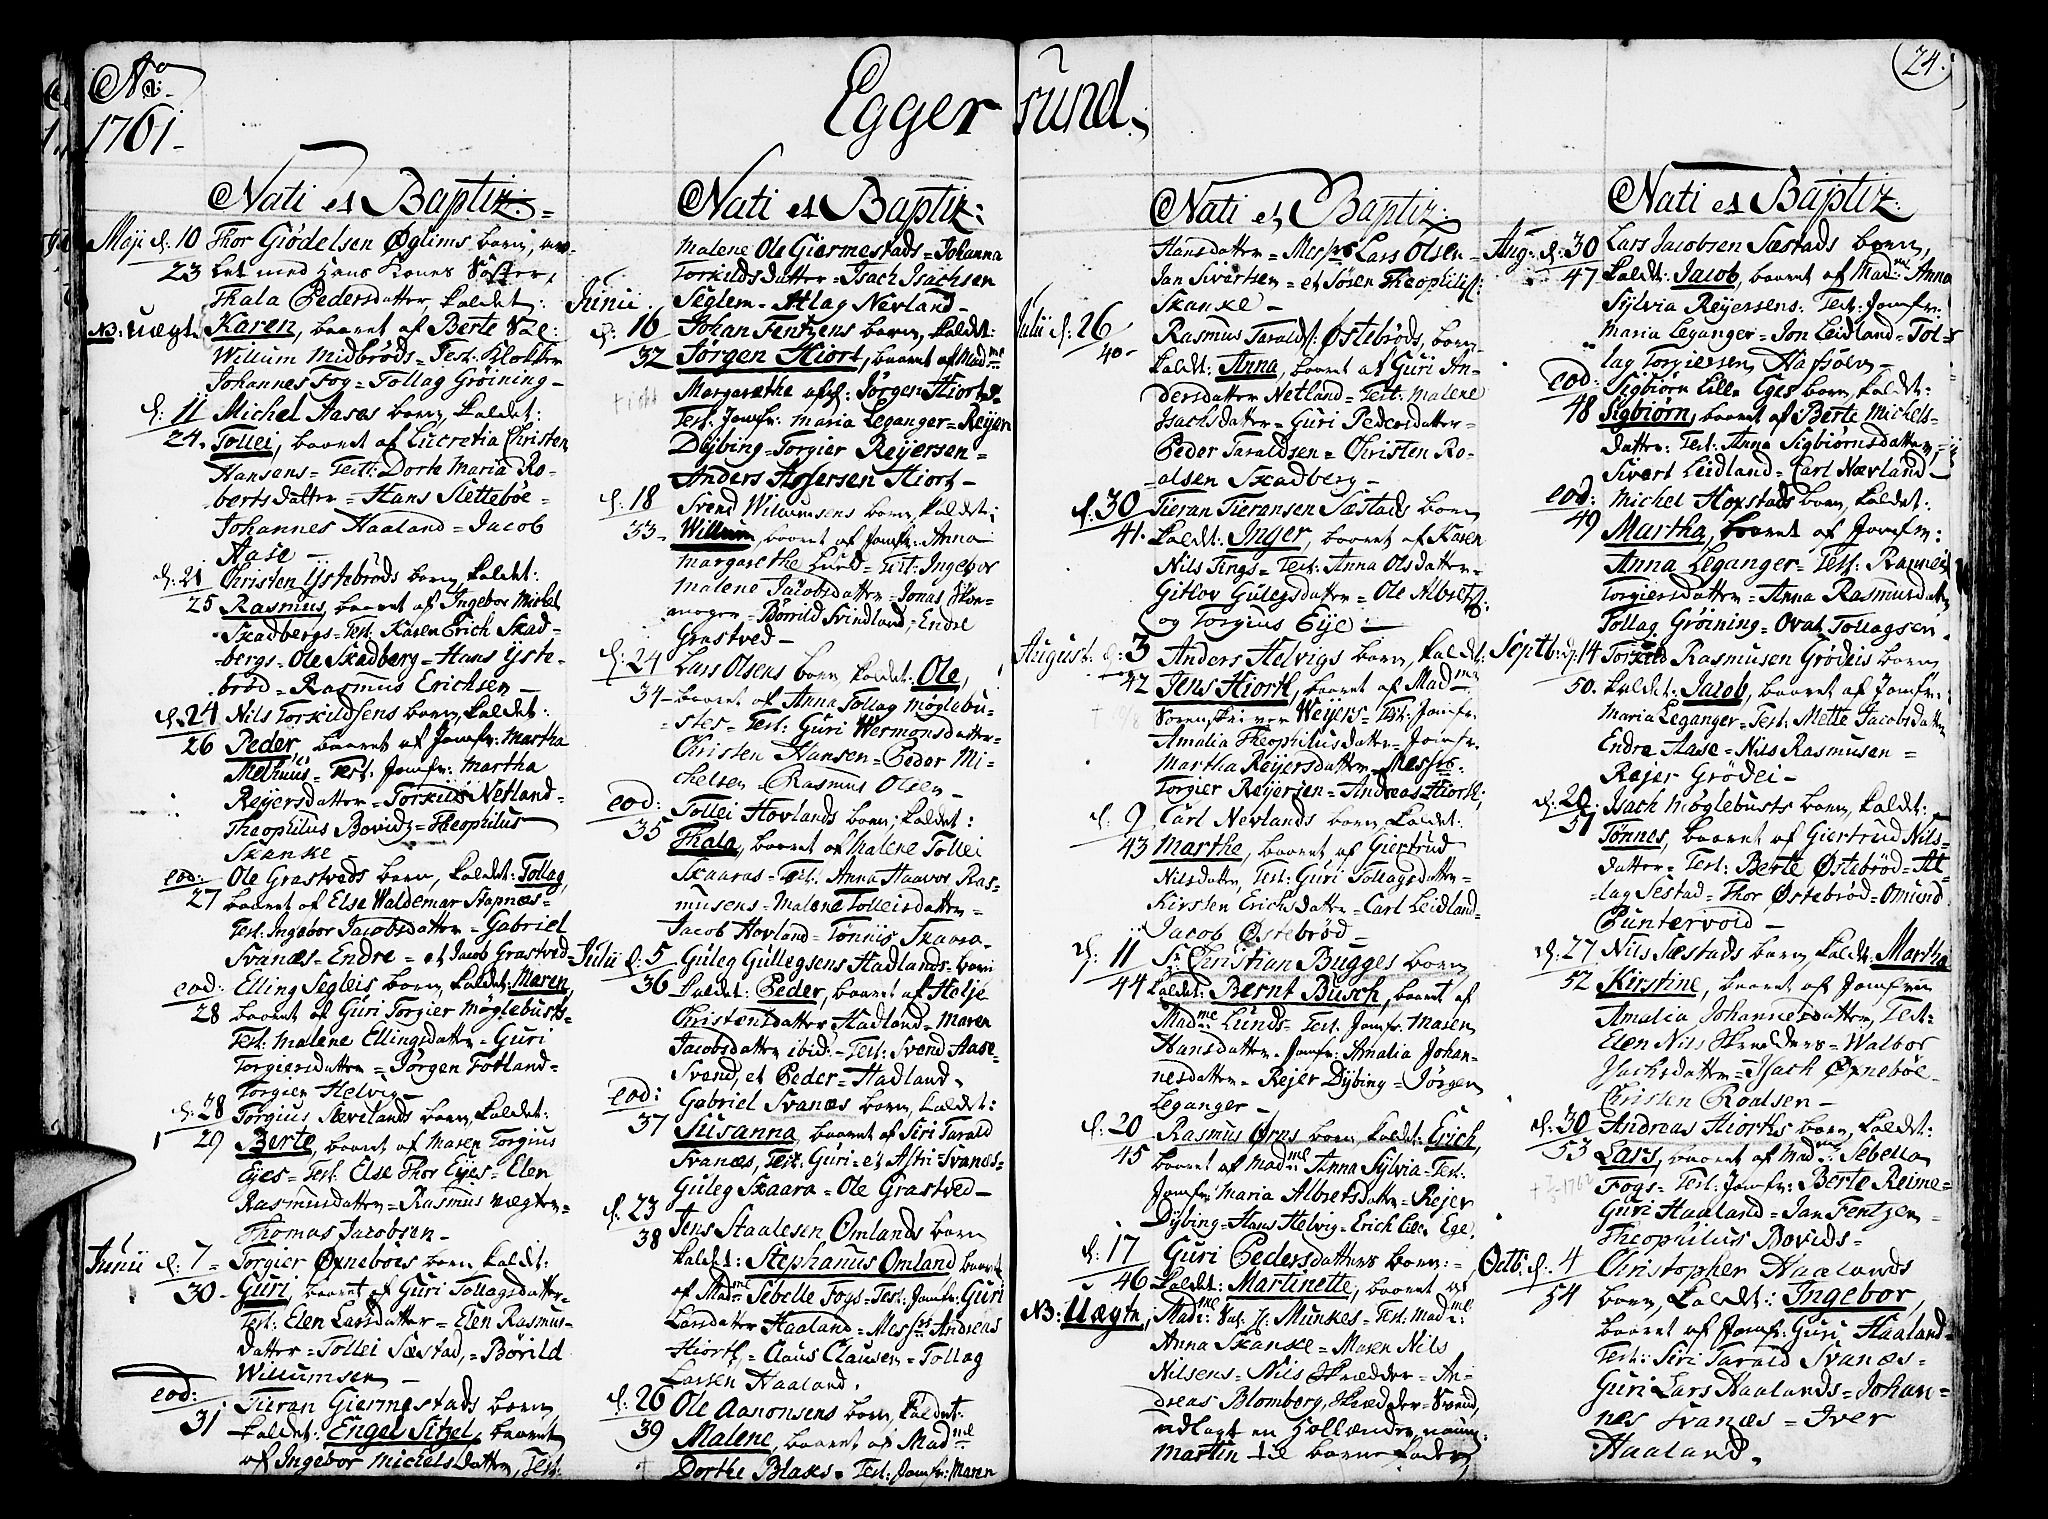 Ao
1761
Egger sund
24.
Nati et Baptiz:
Maji d. 10 Thor Giødelsen Øglims barn, aw-
23 let med Hans Kones Søster,
Thala Pedersdatter, kaldet:
NB: Uægte Karen, baaret af Berte Sal:
Willum Midbrøds = Test: Klokker
Johannes Fog = Tollag Grøining -
d. 11 Michel Aases barn, kaldet:
24. Tollei, baaret af Lucretia Christen
Hansens = Test: Dorte Maria Ro-
bertsdatter = Hans Slettebøe =
Johannes Haaland = Jacob
Aase -
d: 21 Christen Ystebrøds barn, kaldet:
25 Rasmus, baaret af Ingebor Michel
Skadbergs = Test: Karen Erich Skad-
bergs = Ole Skadberg = Hans Yste-
brød = Rasmus Erichsen -
d. 24 Nils Torkildsens barn, kaldet:
26 Peder, baaret af Jomfr: Martha
Methuus = Test: Jomfr: Martha
Reyersdatter = Torkild Netland =
Theophilus Bovids = Theophilus
Skanke
eod: Ole Grastveds barn, kaldet: Tollag,
27 baaret af Else Waldemar Stapnæs =
Test: Ingebor Jacobsdatter = Gabriel
Svanæs = Endre = et Jacob Grastved
eod: Elling Segleis barn, kaldet: Maren,
28 baaret af Guri Torgier Møglebusts =
Test: Malene Ellingsdatter = Guri
Torgiersdatter = Jørgen Fotland =
Torgier Helvig -
d. 28 Torgius Sævelands barn, kaldet:
29 Berte, baaret af Maren Torgius
Eyes = Test: Else Thor Eyes = Elen
Rasmusdatter = Rasmus Vægter =
Thomas Jacobsen -
Junii d. 7 Torgier Øxneboes barn, kaldet:
30 Guri, baaret af Guri Tollagsdatter =
Test: Elen Larsdatter = Elen Rasmus-
datter = Tollei Sæstad, = Børild
Willumsen -
eod: Tieran Giermestads barn,
31 kaldet: Engel Sitzel, baaret
af Ingebor Michelsdatter, Test:
Nati et Baptiz:
Malene Ole Giermestads = Johanna
Torkildsdatter = Isach Isachsen
Seglem = Atlag Nevland -
Junii
d. 16 Johan Fentzens barn, kaldet:
32 Jørgen Hiort, baaret af Madme
Margarethe Jørgen Hiorts =
Test: Jomfr: Maria Leganger = Reyer
Dybing = Torgier Reyersen =
Anders Assersen Hiort -
d. 18 Svend Willumsens barn, kaldet:
33 Willum, baaret af Jomfr: Anna
Margarethe Lund = Test: Ingebor
Malene Jacobsdatter = Jonas
Børrild Svindland, = Endre
Grastved -
d. 24 Lars Olsens barn, kaldet: Ole,
34 baaret af Anna Tollag Møglebu-
stes = Test: Guri Wermonsdatter =
Christen Hansen = Peder Mi-
chelsen = Rasmus Olsen -
eod: Tollei Hovlands barn, kaldet:
35 Thala, baaret af Malene Tollei
Skaaras = Test: Anna Haavor Ras-
musens = Malene Tolleisdatter =
Jacob Hovland = Tønnis Skaara -
Julii d. 5 Guleg Gullegsens Hadlands barn
36 kaldet: Peder, baaret af Helje
Christensdatter Hadland = Maren
Jacobsdatter ibid: = Test: Svend Aase =
Svend, et Peder = Hadland.
eod: Gabriel Svanæs barn, kaldet:
37 Susanna, baaret af Siri Tarald
Svanæs, Test: Guri = et Astri = Svanæs =
Guleg Skaara = Ole Grastved -
d. 23 Jens Staalesen Omlands barn
38 kaldet: Stephanus Omland baaret
af Madme Sebelle Fogs = Test: Jomfr: Guri
Larsdatter Haaland = Messrs Andreas
Hiort = Claus Clausen = Tollag
Larsen Haaland.
d. 26 Ole Aanonsens barn, kaldet:
39 Malene, baaret af Madme
Dorthe Blaxs = Test: Jomfr: Maren
Nati et Baptiz:
Hansdatter = Messrs Lars Olsen =
Jan Svartsen = et Søren Theophilis:
Skanke -
Julii d. 26 Rasmus Taralds: Østebrøds, barn
40 kaldt: Anna, baaret af Guri An-
dersdatter Netland = Test: Malene
Isachsdatter = Guri Pedersdatter =
Peder Taraldsen = Christen Ro-
alsen Skadberg -
d. 30 Tieran Tieransen Sæstads barn
41. kaldt: Inger, baaret af Karen
Nils Tengs = Test: Anna Olsdatter =
Gitlov Gulegsdatter = Ole Albrets:
og Torgius Eije -
August. d. 3 Anders Helvigs barn, kaldt:
42 Jens Hiort, baaret af Madme
Sorenskriver Weyers = Test: Jomfr.
Amalia Theophilusdatter = Jomfr.
Martha Reyersdatter = Messrs:
Torgier Reyersen = Andreas Hiort,
d. 9 Carl Nevlands barn, kaldet:
43 Marthe, baaret af Giertrud
Nilsdatter, Test: Guri Tollagsdatter =
Kirsten Erichsdatter = Carl Leidland =
Jacob Østebrød -
d: 11 Sr Christian Bugges barn,
44 kaldet: Bernt Busch, baaret af
Madme Lunds = Test: Jomfr: Maren
Hansdatter = Jomfr: Amalia Johan-
nesdatter = Rejer Dybing = Jørgen
Leganger -
d: 20 Rasmus Ørns barn, kaldt: Erich,
45 baaret af Madme Anna Sylvia = Test.
Jomfr: Maria Albretsdatter = Rejer
Dybing = Hans Helvig = Erich Ege.
d: 17 Guri Pedersdatters barn: =
46 kaldet: Martinette, baaret af
NB: Uægte, Madme Munkes = Test: Madme:
Anna Skanke = Maren Nils
Nilsens = Nils Skredder = An-
dreas Blomberg, Skredder = Svend,
udlagt en Hollænder, navn:
Martin til barne fader,
Nati et Baptiz:
Aug: d. 30 Lars Jacobsen Sæstads barn,
47 kaldt: Jacob, baaret af Madme Anna
Sylvia Reyersens: Test: Jomfr:
Maria Leganger = Jon Leidland = Tol-
lag Torgiersen Hafsøen -
eod: Sigbiørn Eges barn, kaldet:
48 Sigbiørn, baaret af Berte Michels-
datter: Test: Anna Sigbiørnsdatter =
Sivert Leidland = Carl Nævland -
eod: Michel Hoxstads barn, kaldet:
49 Martha, baaret af Jomfr:
Anna Leganger = Test: Rannei
Torgiersdatter = Anna Rasmusdatter
Tollag Grøining = Ovat Tollagsen.
Septb: d. 14 Torkild Rasmusen Grødeis barn
50. kaldet: Jacob, baaret af Jomfr:
Maria Leganger = Test: Mette Jacobsdatter
Endre Aase = Nils Rasmusen =
Rejer Grødei -
d. 20 Isach Møglebusts barn, kaldt:
51 Tønnes, baaret af Giertrud Nils-
datter = Test: Berte Østebrød = At-
lag Sestad = Thor Østebrød = Omund
Puntervold -
d. 27 Nils Sæstads barn, kaldt: Martha
52 Kirstine, baaret af Jomfru
Amalia Johannesdatter, Test:
Elen Nils Skredders = Walbor
Isachsdatter = Isach Øxnebøe -
Christen Roalsen -
d. 30 Andreas Hiorths barn, kaldet:
53 Lars, baaret af Madme Sebella
Fogs = Test: Jomfr: Berte Reime =
Guri Haaland = Jan Fentzen =
Theophilus Bovids =
Octb: d. 4 Christopher Haalands
54 barn, kaldet: Ingebor,
baaret af Jomfr: Guri Haaland =
Test: Siri Tarald Svanæs =
Guri Lars Haalands = Johan-
nes Svanæs = Iver
Haaland.